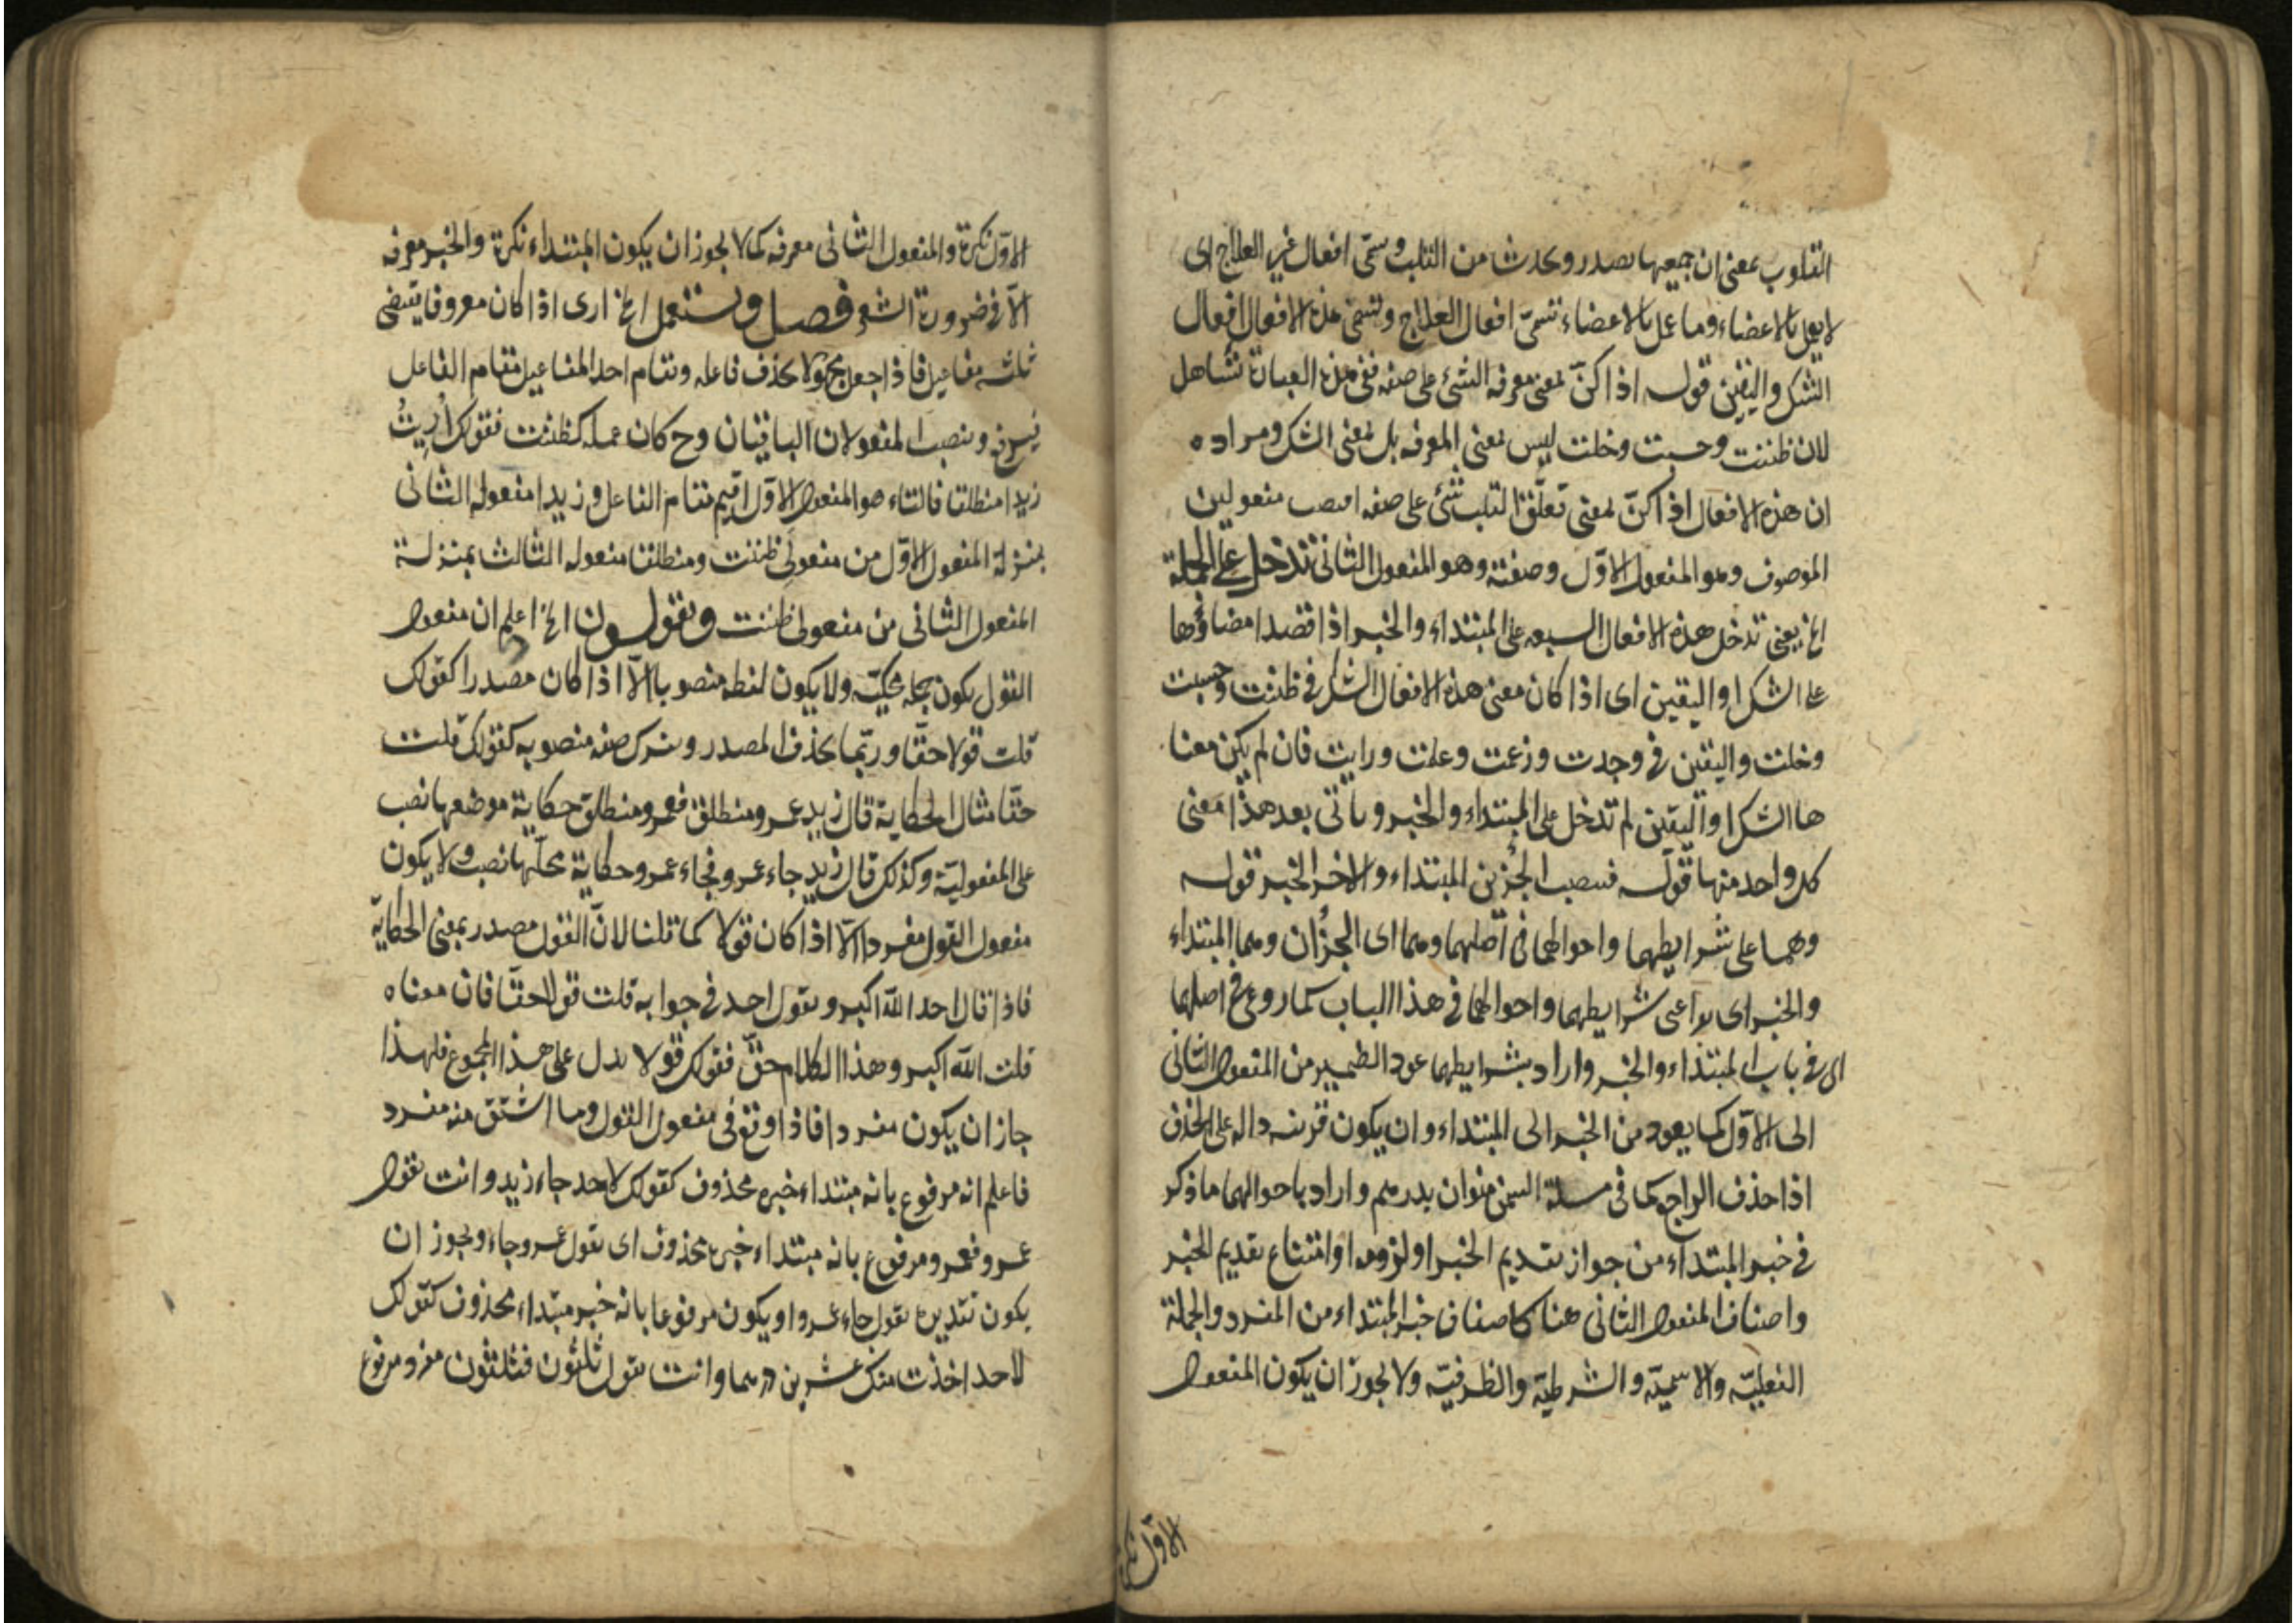 القلوب بمعنى ان جميعها يصدر ويحدث من القلب وتسمى افعال غير العلاج اى
لا يعمل بالاعضاء وما عمل بالاعضاء تسمى افعال العلاج وتسمى هذه الافعال افعال
الشك واليقين قوله اذا كن بمعنى معرفة الشئ على صفة ففى هذه العبارة تساهل
لان ظننت وحسبت وخلت ليس بمعنى المعرفة بل بمعنى الشك ومراده
ان هذه الافعال اذا كنّ بمعنى تعلّق القلب بشئ على صفة نصب مفعولين
الموصوف وهو المفعول الاوّل وصفته وهو المفعول الثانى تدخل على الجملة
الخ يعنى تدخل هذه الافعال السبعة على المبتداء والخبر اذا قصد امضاؤها
على الشك او اليقين اى اذا كان معنى هذه الافعال الشك فى ظننت وحسبت
وخلت واليقين فى وجدت وزعمت وعلمت ورايت فان لم يكن معنا
ها الشك او اليقين لم تدخل على المبتداء والخبر وياتى بعد هذا معنى
كل واحد منها قوله فتنصب الجزئين المبتداء والاخر الخبر قوله
وهما على شرايطهما واحوالهما فى اصلهما وهما اى الجزآن وهما المبتداء
والخبر اى يراعى شرايطهما واحوالهما فى هذا الباب كما روعى فى اصلهما
اى فى باب المبتداء والخبر واراد بشرايطهما عود الضمير من المفعول الثانى
الى الاوّل كما يعود من الخبر الى المبتداء وان يكون قرينة دالة على الحذف
اذا حذف الراجع كما فى مسئلة السمن منوان بدرهم واراد باحوالهما ما ذكر
فى خبر المبتداء من جواز تقديم الخبر او لزومه او امتناع تقديم الخبر
واصناف المفعول الثانى هنا كاصناف خبر المبتداء من المفرد والجملة
الفعليّة والاسميّة والشرطيّة والظرفيّة ولا يجوز ان يكون المفعول
الاوّل نكرة
الاوّل نكرة والمفعول الثانى معرفة كما لا يجوز ان يكون المبتداء نكرة والخبر معرفة
الّا فى ضرورة الشعر فصل ويستعمل الخ ارى اذا كان معروفا يقتضى
ثلثة مفاعيل فاذا جعل مجهولا يحذف فاعله ويقام احد المفاعيل مقام الفاعل
وينصب المفعولان الباقيان وح كان عمله كظننت فقولك أُرِيتُ
زيدا منطلقا فالتاء هو المفعول الاوّل اقيم مقام الفاعل وزيدا مفعوله الثانى
بمنزلة المفعول الاوّل من مفعولى ظننت ومنطلقا مفعوله الثالث بمنزلة
المفعول الثانى من مفعولى ظننت ويقولون الخ اعلم ان مفعول
القول يكون جملة محكيّة ولا يكون لفظه منصوبا الّا اذا كان مصدرا كقولك
قلت قولا حقّا وربّما يحذف المصدر ويترك صفة منصوبة كقولك قلت
حقّا مثال الحكاية قال زيد عمرو منطلق فعمرو منطلق حكاية موضعها نصب
على المفعوليّة وكذلك قال زيد جاء عمرو فجاء عمرو حكاية محلّها نصب ولا يكون
مفعول القول مفردا الّا اذا كان قولا كما قلنا لانّ القول مصدر بمعنى الحكاية
فاذا قال احد اللّه اكبر ويقول احد فى جوابه قلت قولا حقّا فان معناه
قلت اللّه اكبر وهذا الكلام حقّ فقولك قولا يدل على هذا المجموع فلهذا
جاز ان يكون مفردا فاذا وقع فى مفعول القول وما اشتق منه مفرد
فاعلم انه مرفوع بانه مبتداء خبره محذوف كقولك لاحد جاء زيد وانت تقول
عمرو فعمرو مرفوع بانه مبتداء خبره محذوف اى تقول عمرو جاء ويجوز ان
يكون تقديره تقول جاء عمرو او يكون مرفوعا بانه خبر مبتداء محذوف كقولك
لاحد اخذت منك عشرين درهما وانت تقول ثلثون فثلثون مفرد مرفوع